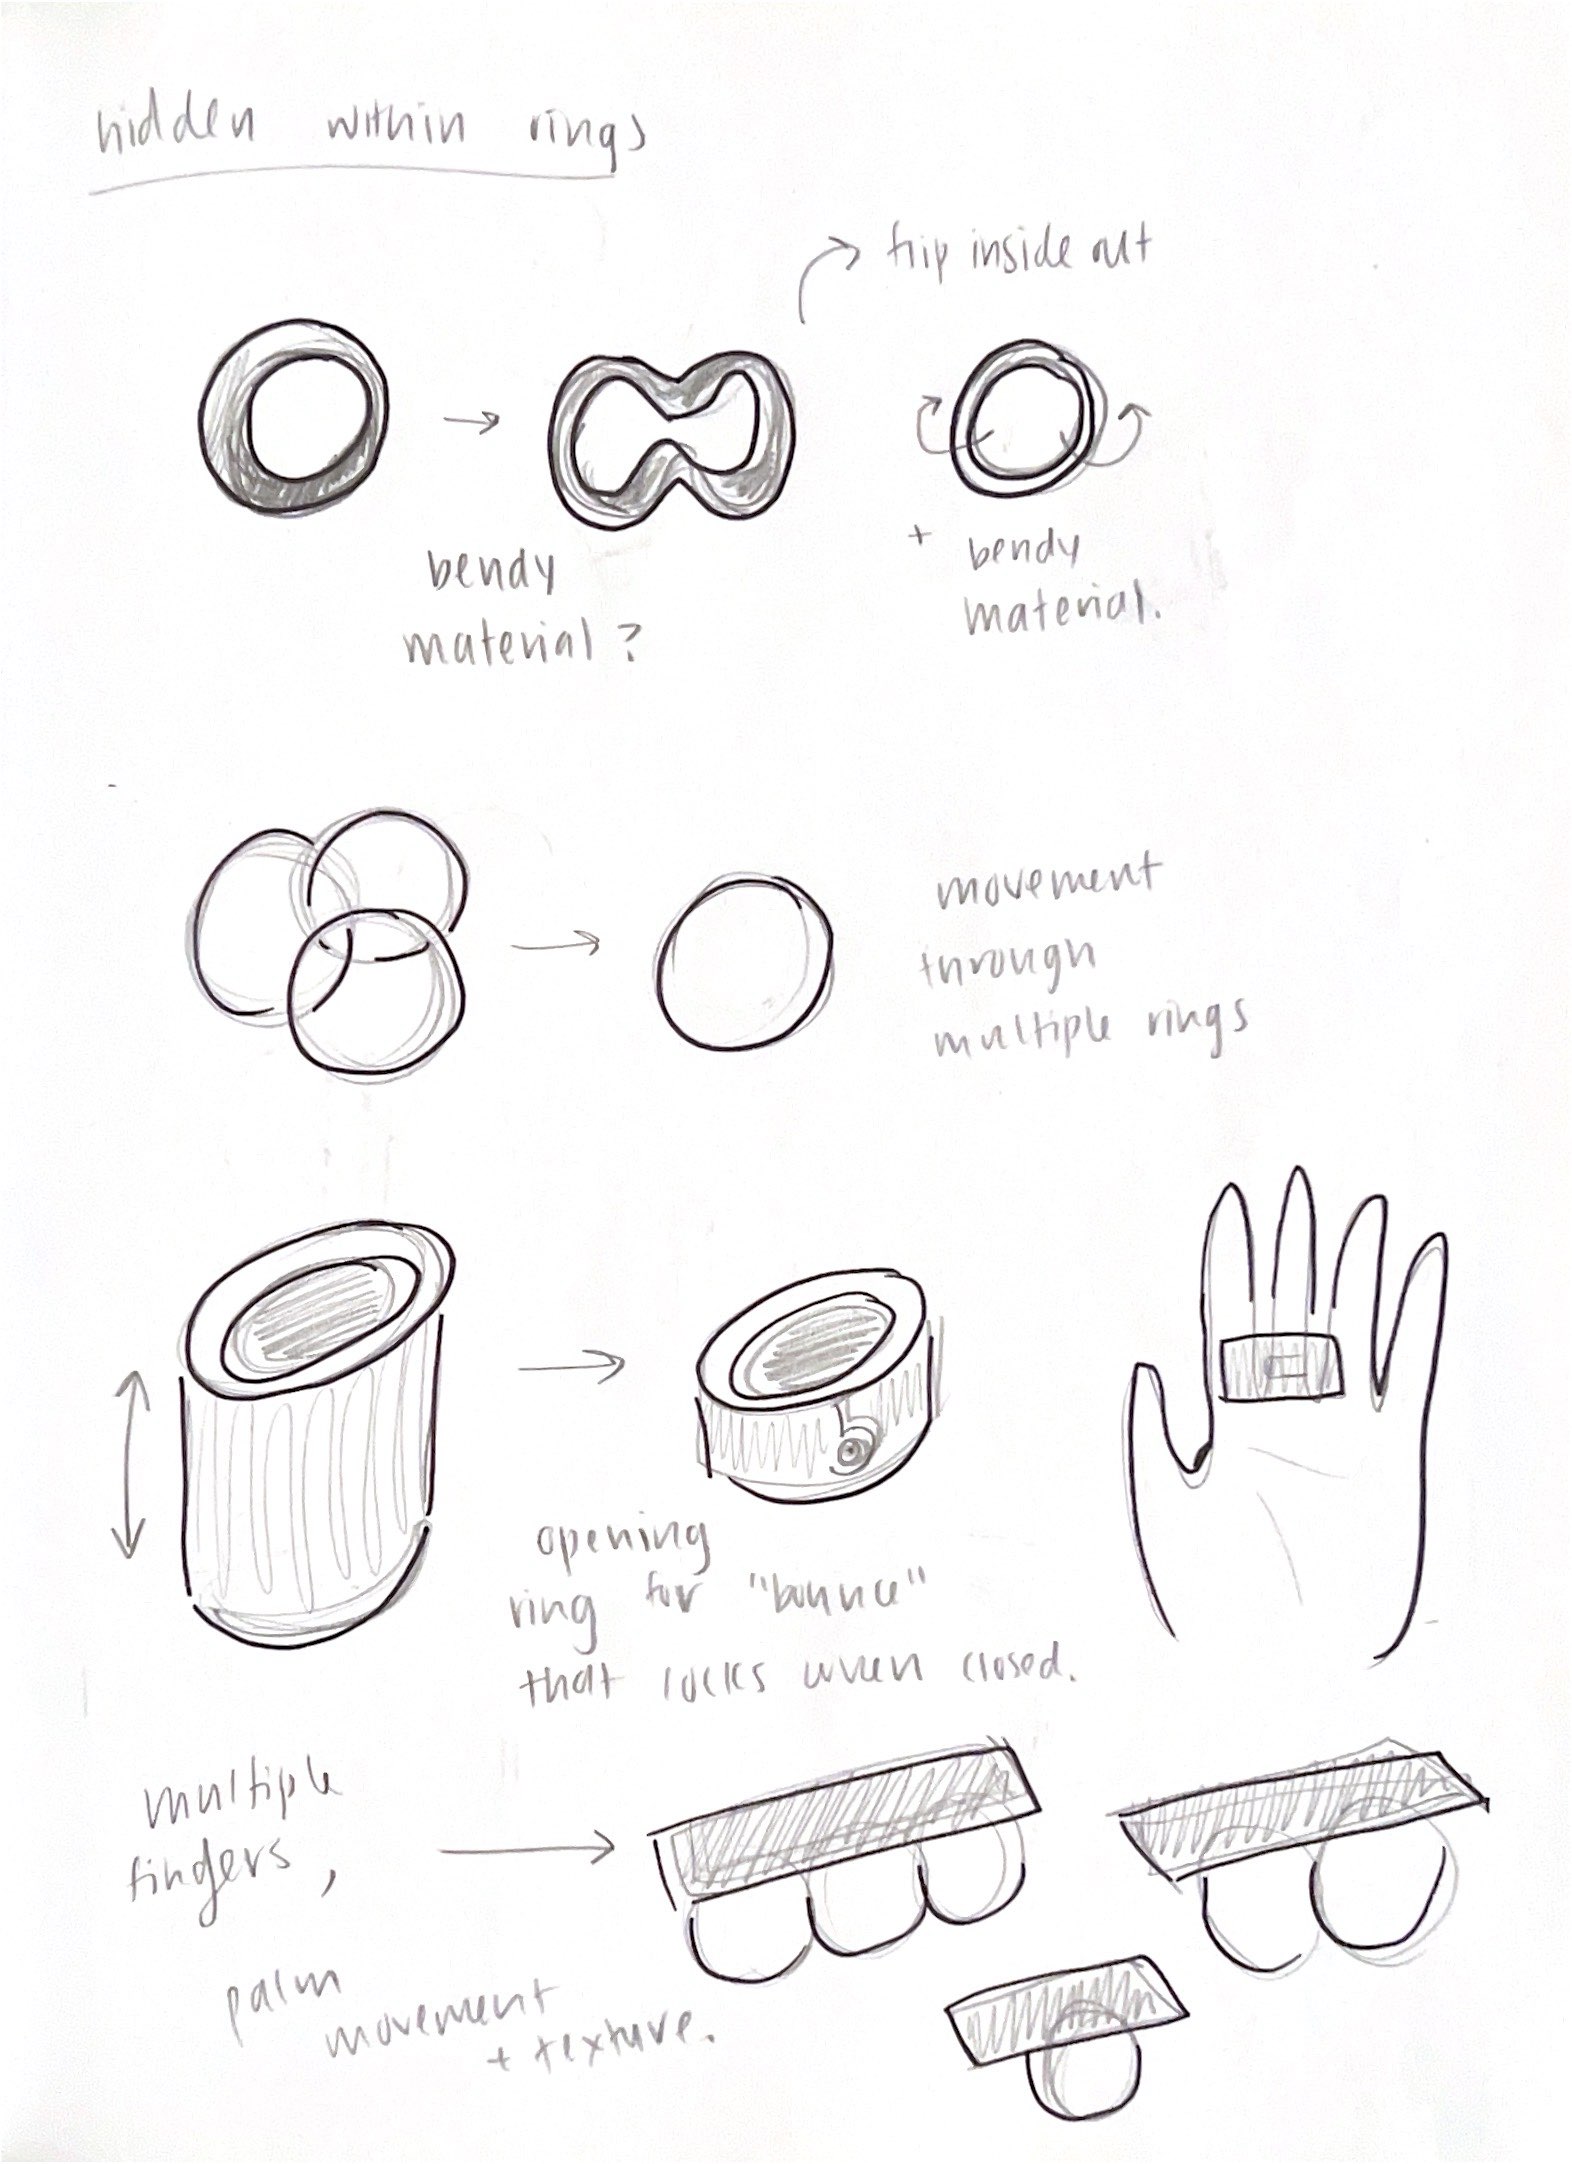 hidden within rings
flip inside out
bendy
material?
+ bendy
material.
movement
through
multiple rings
opening
ring for "bounce"
that locks when closed.
multiple
fingers,
palm
movement
+ texture.